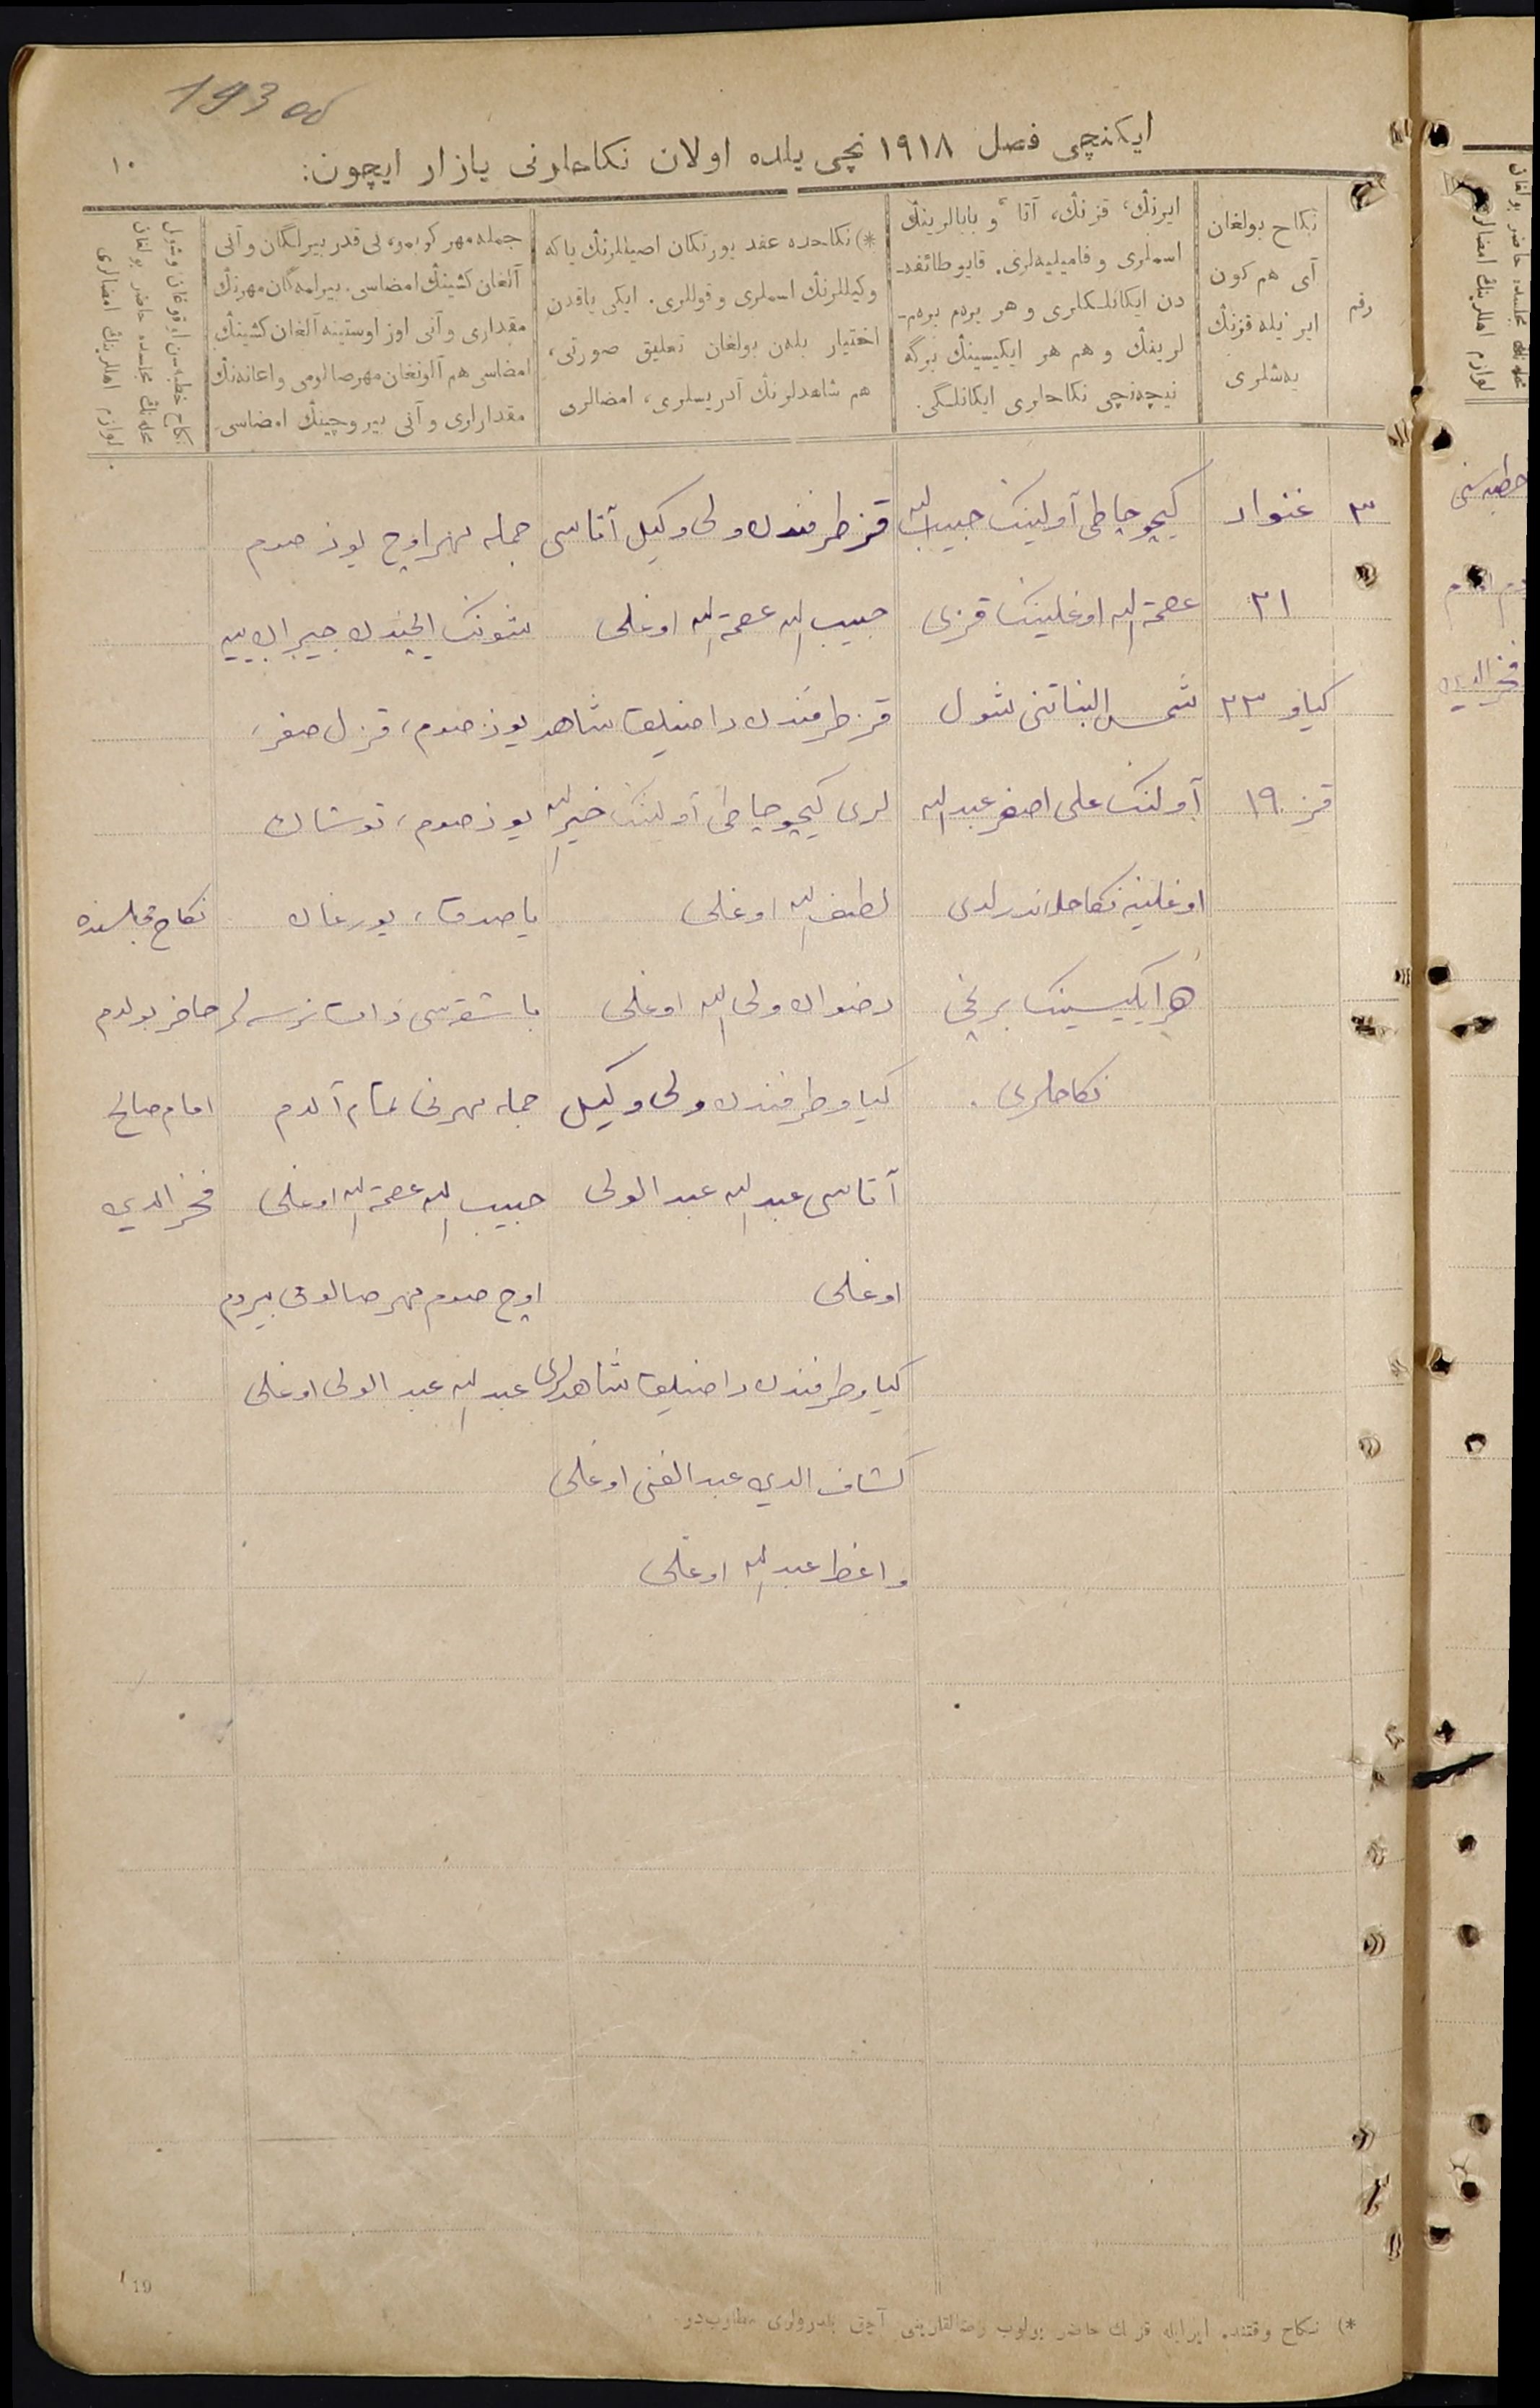 193 об
ایکنچی فصل ۱۹۱۸ نچی یلده اولان نکاحلرنی یازار ایچون:
۱۰
رقم
نکاح بولغان
آی هم کون
ایر ئیله قزنڭ
یەشلری
ایرنڭ، قزنڭ، آتا و بابالرینڭ
اسملری و فامیلیەلری. قایو طائفه‌-
دن ایکانلکلری و هر برەم برەم-
لرینڭ و هم هر ایکیسینڭ برگه
نیچەنچی نکاحلری ایکانلگی.
*) نکاحده عقد یورتکان اصیللرنڭ یاکه
وکیللرنڭ اسملری و قوللری. ایکی یاقدن
اختیار بلەن بولغان تعلیق صورتی،
هم شاهدلرنڭ آدریسلری، امضالری
جمله مهر کوبمو، نی قدر بیرلگان و آنی
آلغان کشینڭ امضاسی. بیرلمەگان مهرنڭ
مقداری و آنی اوز اوستینه آلغان کشینڭ
امضاسی هم آلونغان مهر صالومی و اعانەنڭ
مقدارلری و آنی بیروچینڭ امضاسی.
نکاح خطبه‌سن اوقوغان وشول
محله‌نڭ مجلسده حاضر بولغان
لوازم اهللرینڭ امضالری
۳
غنوار
۲۱
کیاو ۲۳
قز ۱۹
کیچو چاطی آولینک حبیب الله
عصمة الله اوغلینک قزی
شمس البناتنی شول
آولنک علی اصغر عبد الله
اوغلینه نکاحلاندرلدی
هر ایکیسینک برنچی
نکاحلری.
قز طرفندن ولی وکیل آتاسی
حبیب الله عصمة الله اوغلی
قز طرفندن راضیلق شاهد
لری کیچو چاطی آولینک خیر الله
لطف الله اوغلی
رضوان ولی الله اوغلی
کیاو طرفندن ولی وکیل
آتاسی عبد الله عبد الولی
اوغلی
کیاو طرفندن راضیلق شاهدلری
کشاف الدین عبد الغنی اوغلی
واعظ عبد الله اوغلی
جمله مهر اوچ یوز صوم
شونک ایچندن
یوز صوم، قزل صغر،
یوز صوم، توشاك
یاصدق، یورغان
باشقه‌سی ذات نرسه‌لر
جمله مهرنی تمام آلدم
حبیب الله عصمة الله اوغلی
اوچ صوم مهر صالومی بیردم
عبد الله عبد الولی اوغلی
نکاح مجلسنده
حاضر بولدم
امام صالح
فخر الدین
*) نکاح وقتنده ایر ایله قزنڭ حاضر بولوب رضالقلارینی آچق بلدرولری مطلوب‌در
19